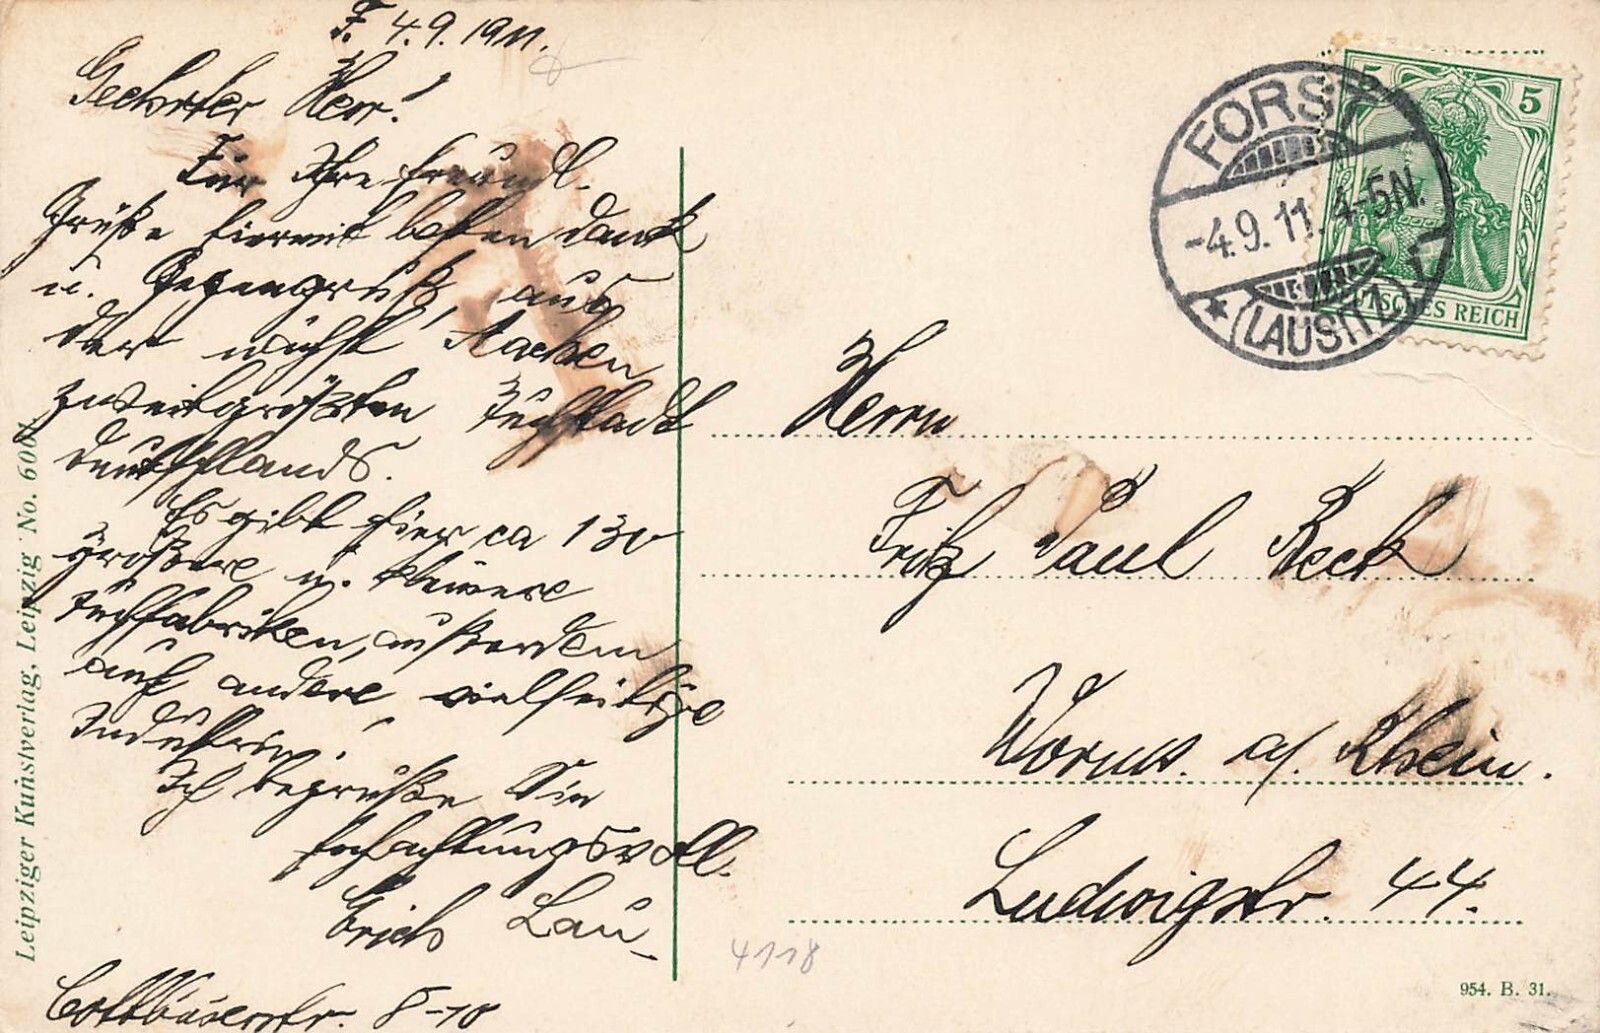 F. 4.9.1911.
Geehrter Herr!
Für Ihre freundl.
Grüße hiermit besten Dank
u. Gegengruß, aus
der nächst Aachen
zweitgrößten Tuchstadt
Deutschlands.
Es gibt hier ca 130
größere u. kleinere
Tuchfabriken, außerdem
auch andere vielseitige
Industrien.
Ich begrüße Sie
hochachtungsvoll.
Erich Lau
Cottbuserstr. 8-10
Leipziger Kunstverlag, Leipzig No.
FORST
-4.9.11. 4-5N.
(LAUSITZ) 1
5 5
DEUTSCHES REICH
Herrn
Fritz Paul Reck
Worms a/ Rhein.
Ludwigstr. 44.
4118
954. B. 31.